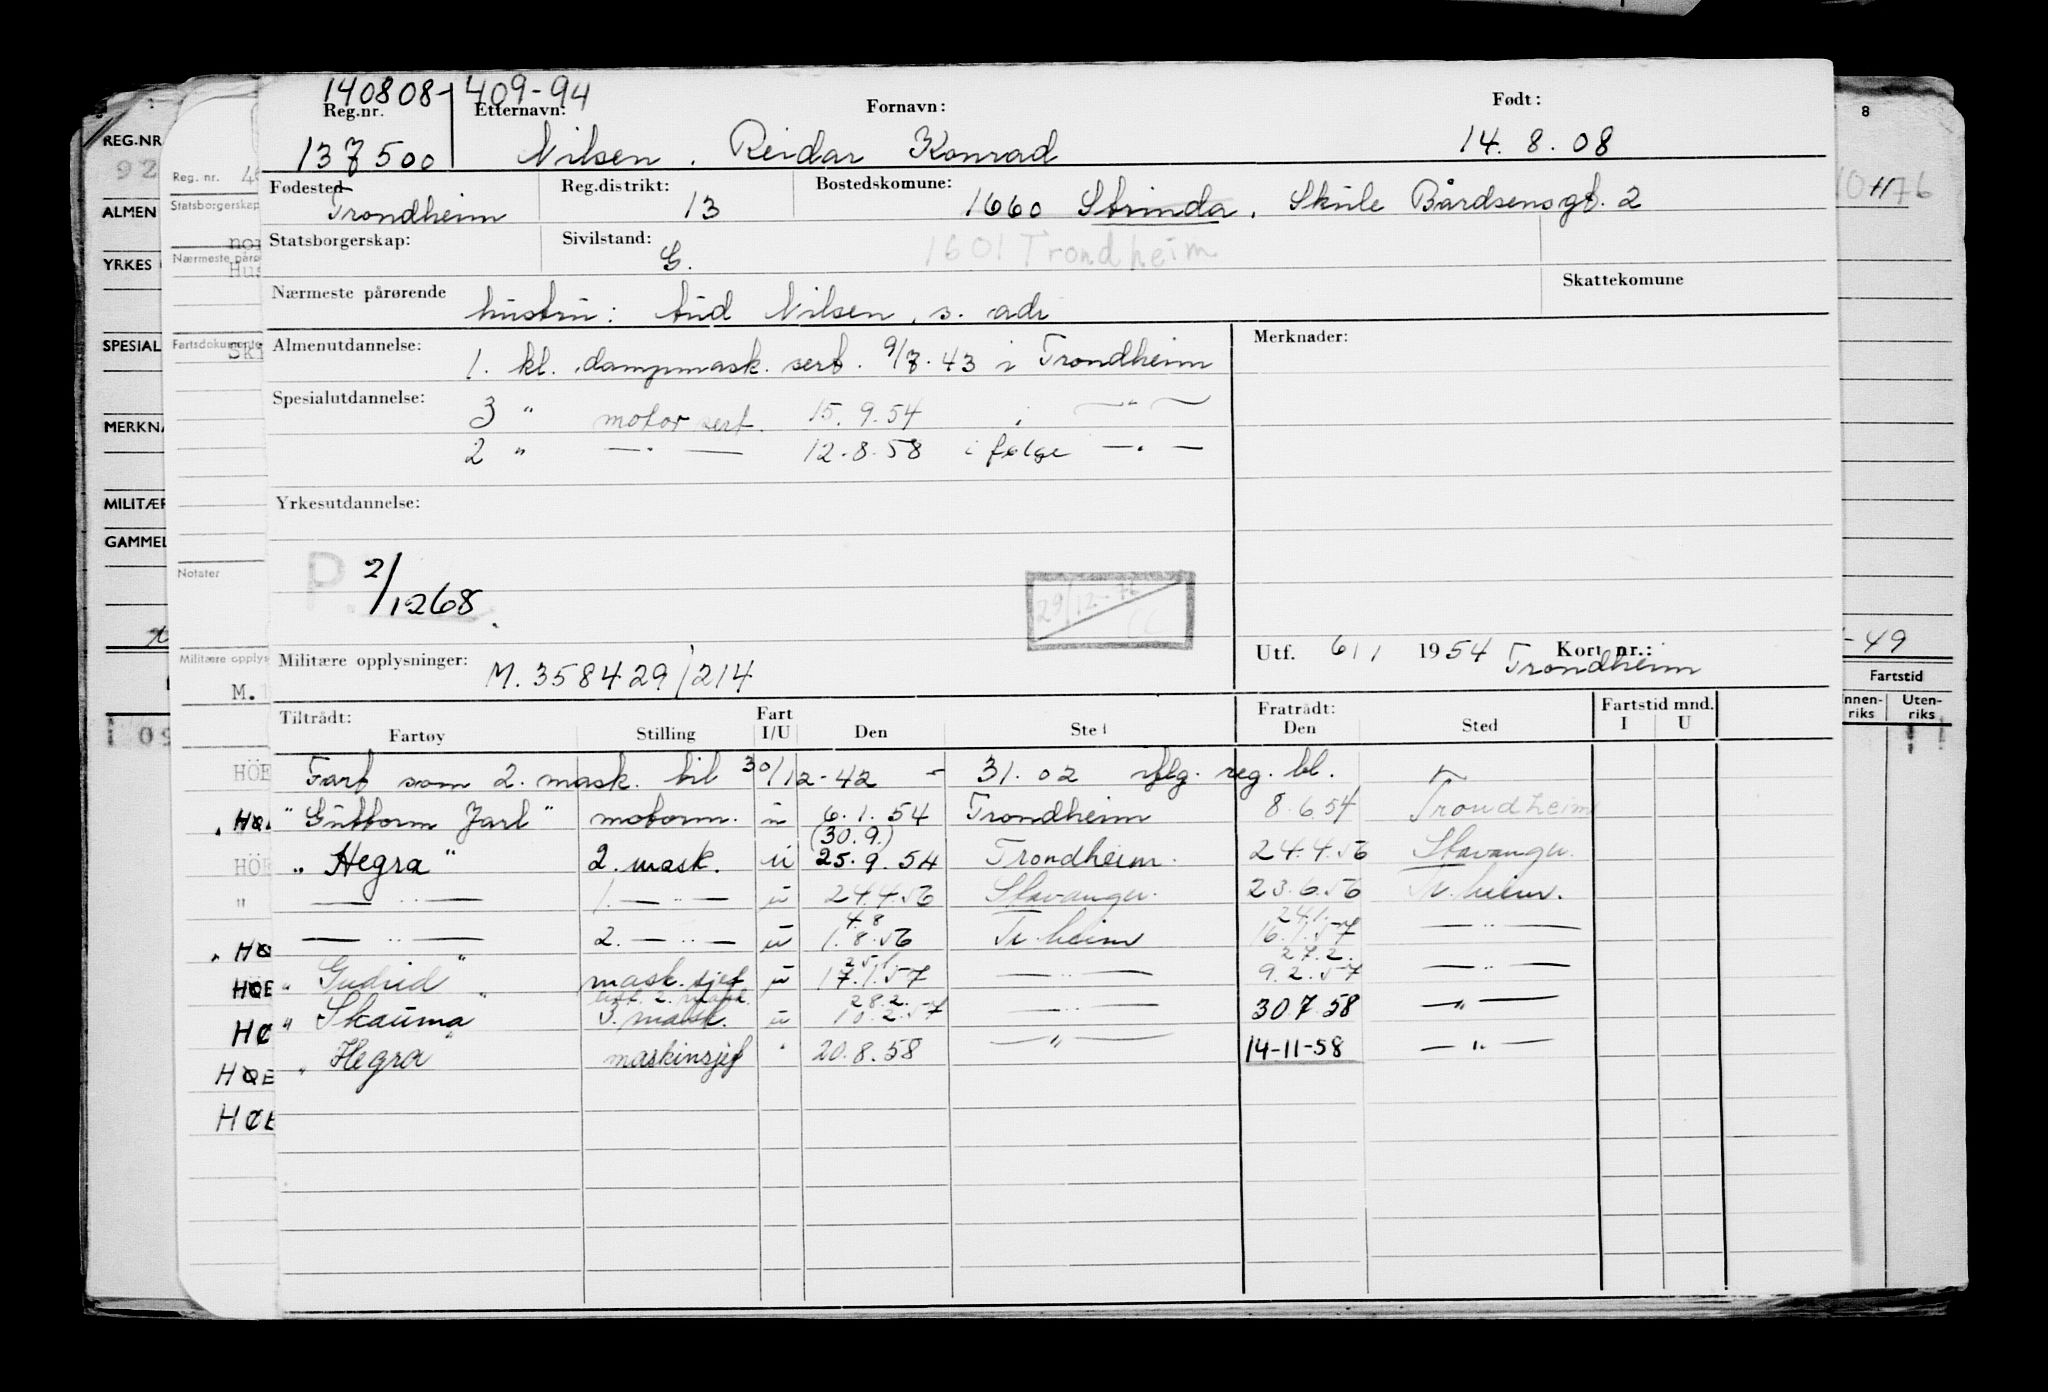 140808-409-94
Reg.nr. Etternavn: Fornavn: Født:
137500 Nilsen, Reidar Konrad 14. 8. 08
Fødested Reg.distrikt: Bostedskomune:
Trondheim 13 1660 Strinda, Skule Bårdsensgt. 2
Statsborgerskap: Sivilstand: G. 1601 Trondheim
Nærmeste pårørende Skattekomune
hustru: Aud Nilsen, s. adr
Almenutdannelse: 1. kl. dampmask. sert. 9/7. 43 i Trondheim Merknader:
Spesialutdannelse: 3 " motor sert. 15. 9. 54 i — " —
2 " — . — 12. 8. 58 i følge — . —
Yrkesutdannelse:
P. 2/1268.
29/12-72
Militære opplysninger: M. 358429/214 Utf. 6/1 1954 Kort nr.:
Trondheim
Tiltrådt: Fart Fratrådt: Fartstid mnd.
Fartøy Stilling I/U Den Sted Den Sted I U
Fart som 2. mask. til 30/12-42 - 31. 02 iflg. reg. bl.
" Guttorm Jarl " motorm. u 6. 1. 54 Trondheim 8. 6. 54 Trondheim
(30. 9.)
" Hegra " 2. mask. u 25. 9. 54 Trondheim. 24. 4. 56 Stavanger.
" — " — 1. — " — u 24. 4. 56 Stavanger. 23. 6. 56 Tr. heim.
4. 8 24. 1.
— " — 2. — " — u 1. 8. 56 Tr. heim 16. 1. 57 — " —
25. 1. 27. 2.
" Gudrid " mask. sjef u 17. 1. 57 — " — 9. 2. 57 — " —
28. 2.
" Skauma " 3. mask. u 10. 2. 57 — " — 30. 7. 58 — " —
" Hegra " maskinsjef " 20. 8. 58 — " — 14-11-58 — " —
REG.NR
92
ALMEN
YRKES
SPESIAL
MERKNA
MILITÆR
GAMMEL
Reg. nr.
Statsborgerskap
nor
Nærmeste pårø
Hus
Fartsdokumente
Notater
Militære opplys
M.
HÖE
HÖE
HÖE
HØ
HØE
HØE
8
-49
Fartstid
nnen-riks Uten-riks